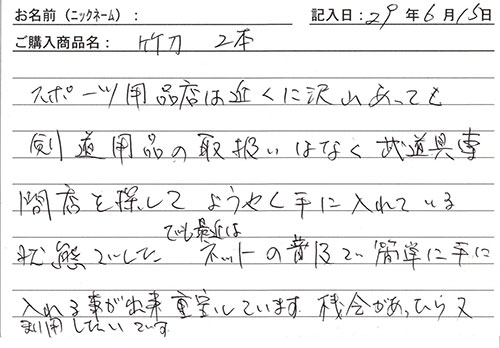 お名前（ニックネーム）： 記入日：29年6月15日
ご購入商品名： 竹刀 2本
スポーツ用品店は近くに沢山あっても
剣道用品の取扱いはなく武道具専
門店を探してようやく手に入れている
状態でした でも最近は ネットの普及で簡単に手に
入れる事が出来重宝しています 機会があったら又
利用したいです